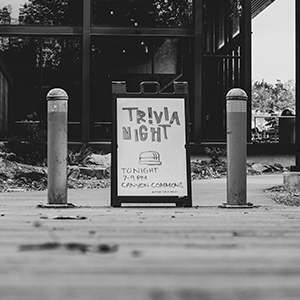 TR!V!A
NIGHT
TONIGHT
7-9 PM
CANYON COMMONS